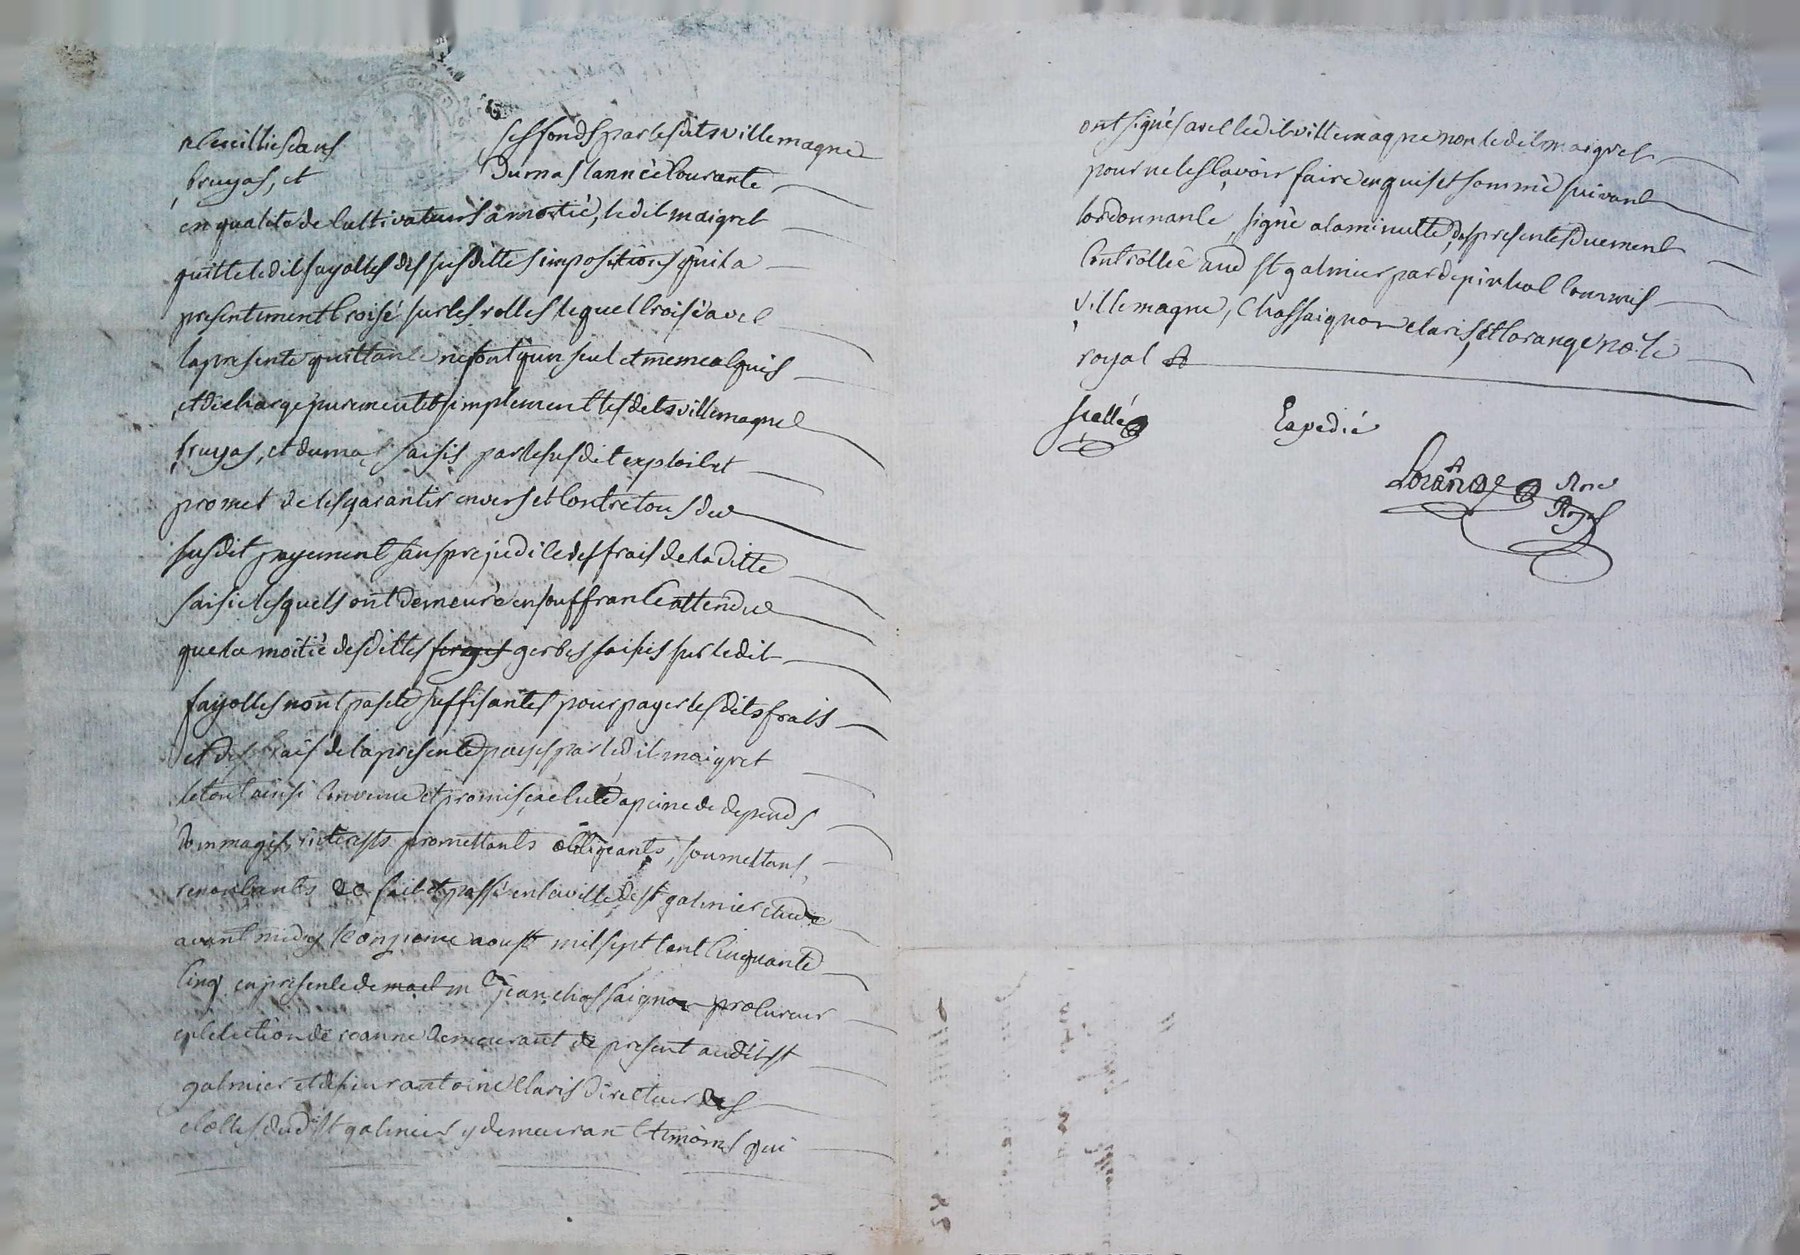 receuillies dans ses fonds par lesdits villemagne
bruyas, et dumas lannèe courante
en qualité de cultivateurs a moitié, ledit maigret
quitte ledit fayolles des susdittes impositions quil a
presentement croisé sur les rolles lequel croisé avec
la presente quittance ne font qun seul et meme acquis
et decharge purement et simplement lesdits villemagne
bruyas, et dumas saisis par le susdit exploit et
promet de les garantir envers et contre tous du
susdit payement sans prejudice des frais de la ditte
saisie lesquels ont demeuré en souffrance attendu
que la moitié desdittes gerbes saisies sur ledit
fayolles nont pas eté suffisantes pour payer lesdits frais
et des frais de la presente payes par ledit maigret
le tout ainsi convenu et promis, a peine de depends
dommages, interests promettants obligeants, soumettans,
renonçants &c fait et passé en la ville de st galmier etude
avant midy le onzieme aoust mil sept cent cinquante
cinq en presence de me jean chassaignon procureur
en lelection de roanne demeurant de present audit st
galmier et de sieur antoine claris directeur des
dud st galmier y demeurant temoins qui
ont signés avec ledit villemagne non ledit maigret
pour ne le sçavoir faire enquis et sommé suivant
lordonnance, signé a la minutte des presentes duement
controllée aud st galmier par depinhac commis
villemagne, Chassaignon claris, et lorange nore
royal
scellé Expedié
Lorange Nore
Royal